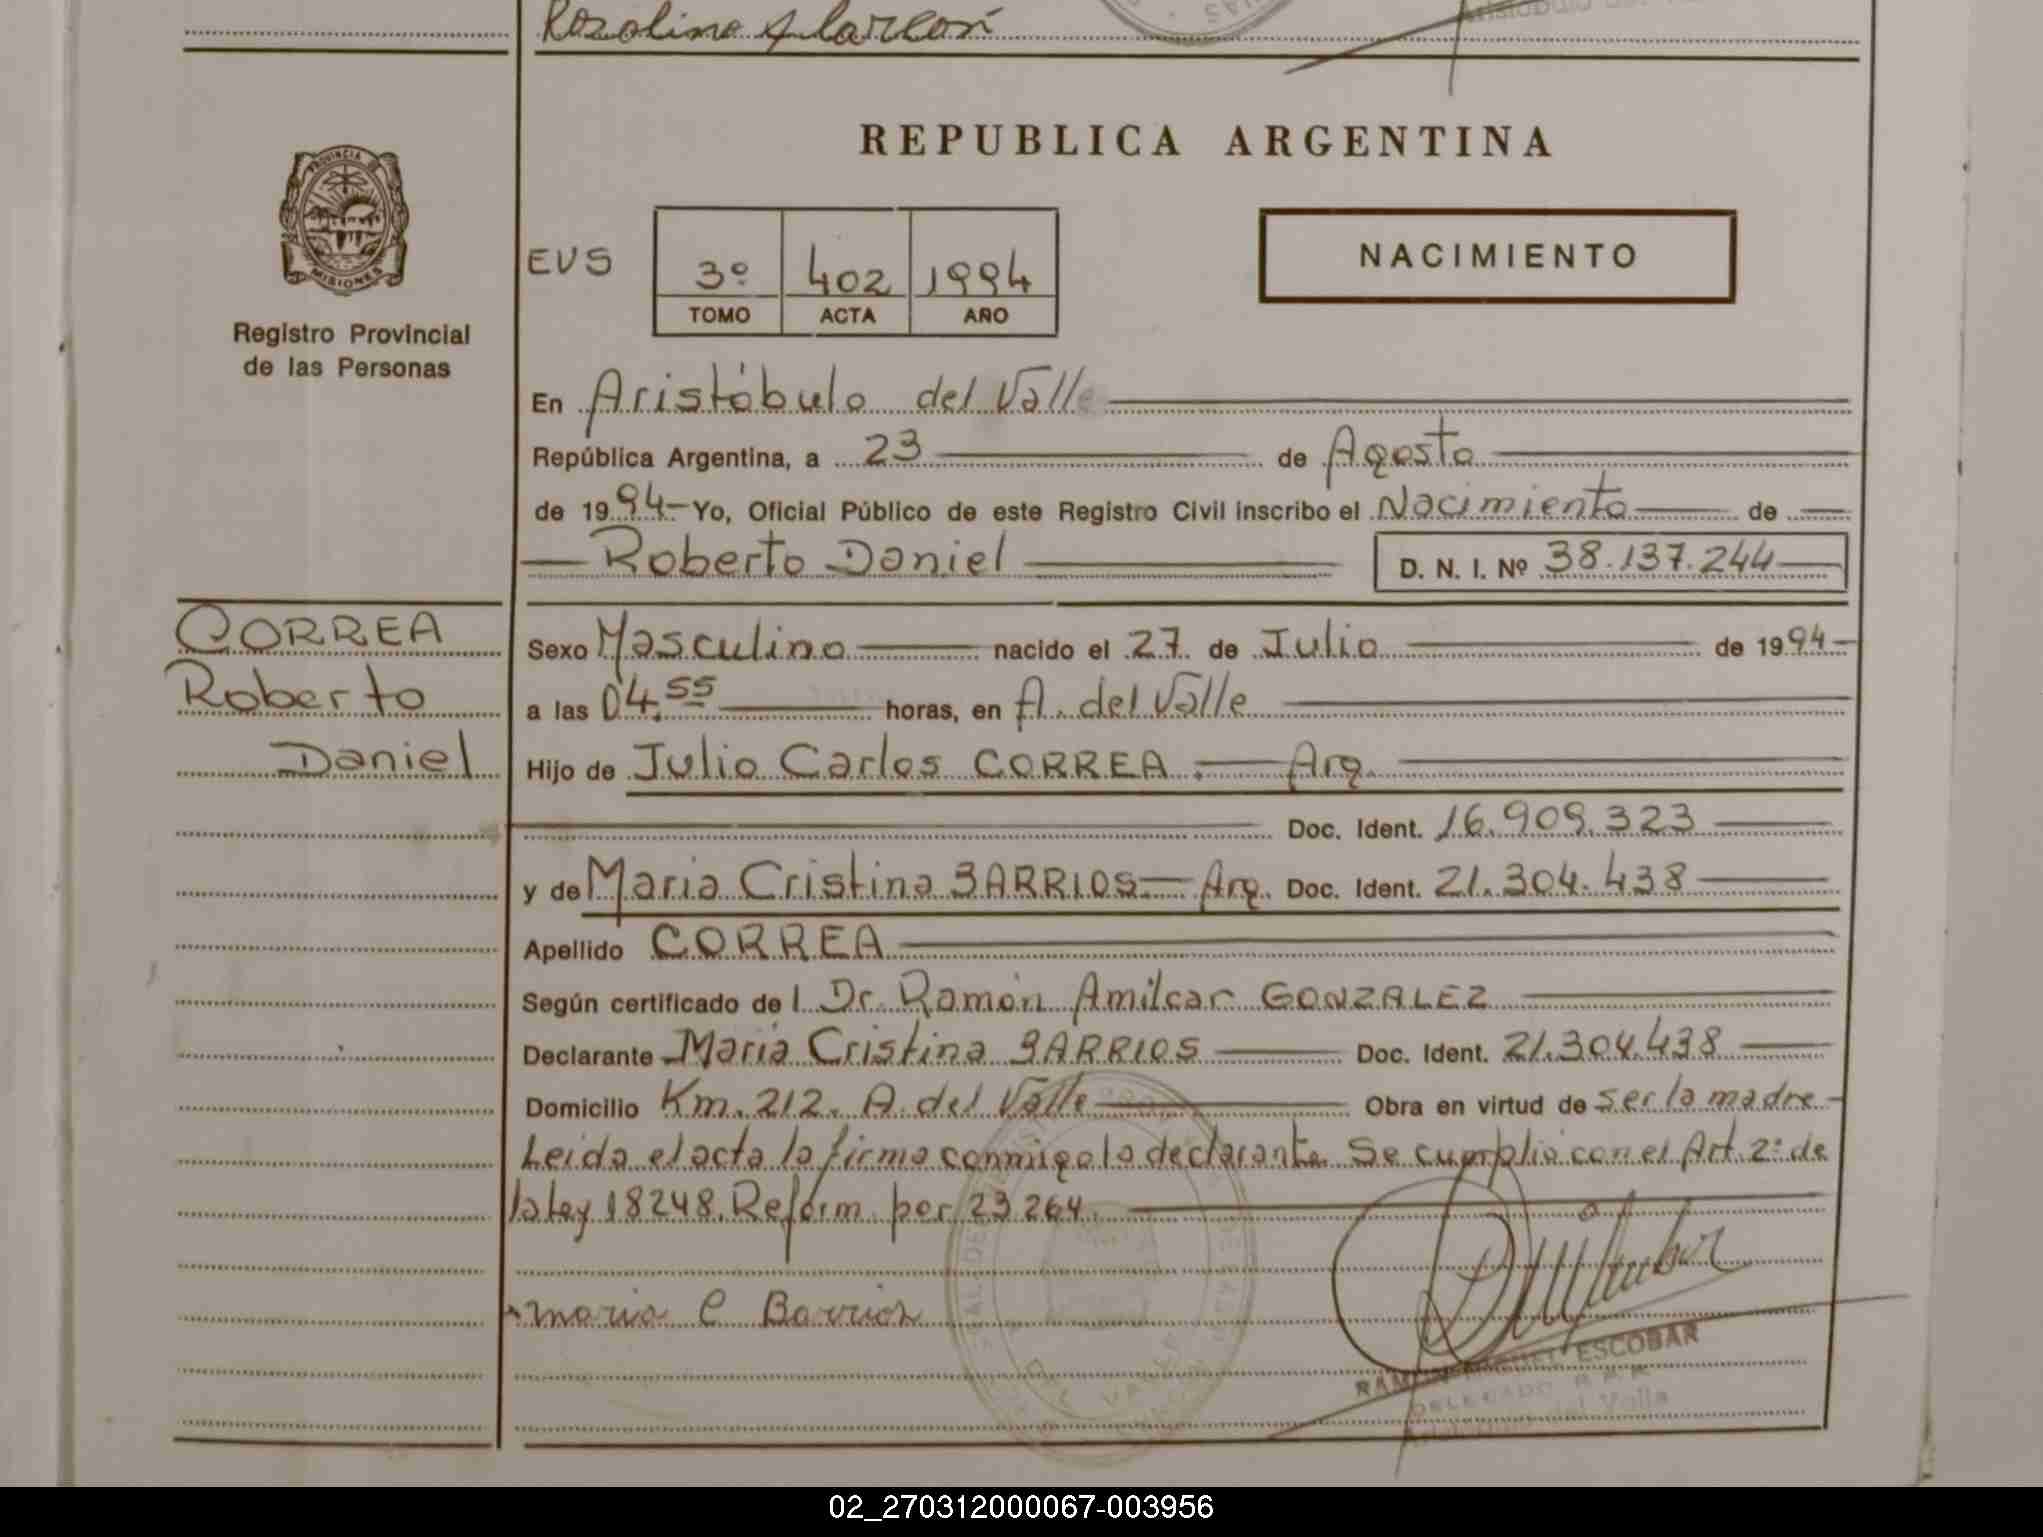 Rozalino Alarcón
REPUBLICA ARGENTINA
PROVINCIA DE
MISIONES
Registro Provincial
de las Personas
EVS
3º 402 1994
TOMO ACTA AÑO
NACIMIENTO
En Aristóbulo del Valle
República Argentina, a 23 de Agosto
de 1994 Yo, Oficial Público de este Registro Civil inscribo el Nacimiento de
Roberto Daniel D. N. I. Nº 38.137.244
CORREA
Roberto
Daniel
Sexo Masculino nacido el 27 de Julio de 1994
a las 04.55 horas, en A. del Valle
Hijo de Julio Carlos CORREA. Arg.
Doc. Ident. 16.909.323
y de Maria Cristina BARRIOS Arg. Doc. Ident. 21.304.438
Apellido CORREA
Según certificado de l Dr. Ramón Amilcar GONZALEZ
Declarante María Cristina BARRIOS Doc. Ident. 21.304.438
Domicilio Km. 212. A. del Valle Obra en virtud de ser la madre
Leida el acta la firma conmigo la declarante. Se cumplió con el Art. 2º de
la ley 18248. Reform. por 23.264.
Maria C Barrios
ESCOBAR
DELEGADO R.P.P.
del Valle
02_270312000067-003956